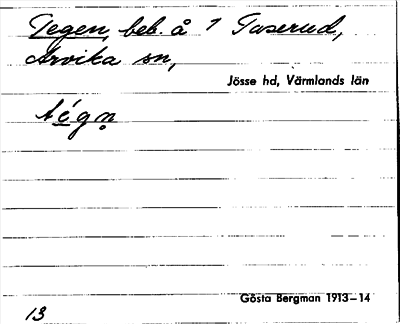 Tegen, beb. å 1 Taserud,
Arvika sn,
Jösse hd, Värmlands län
té̱gn̥
Gösta Bergman 1913–14
13